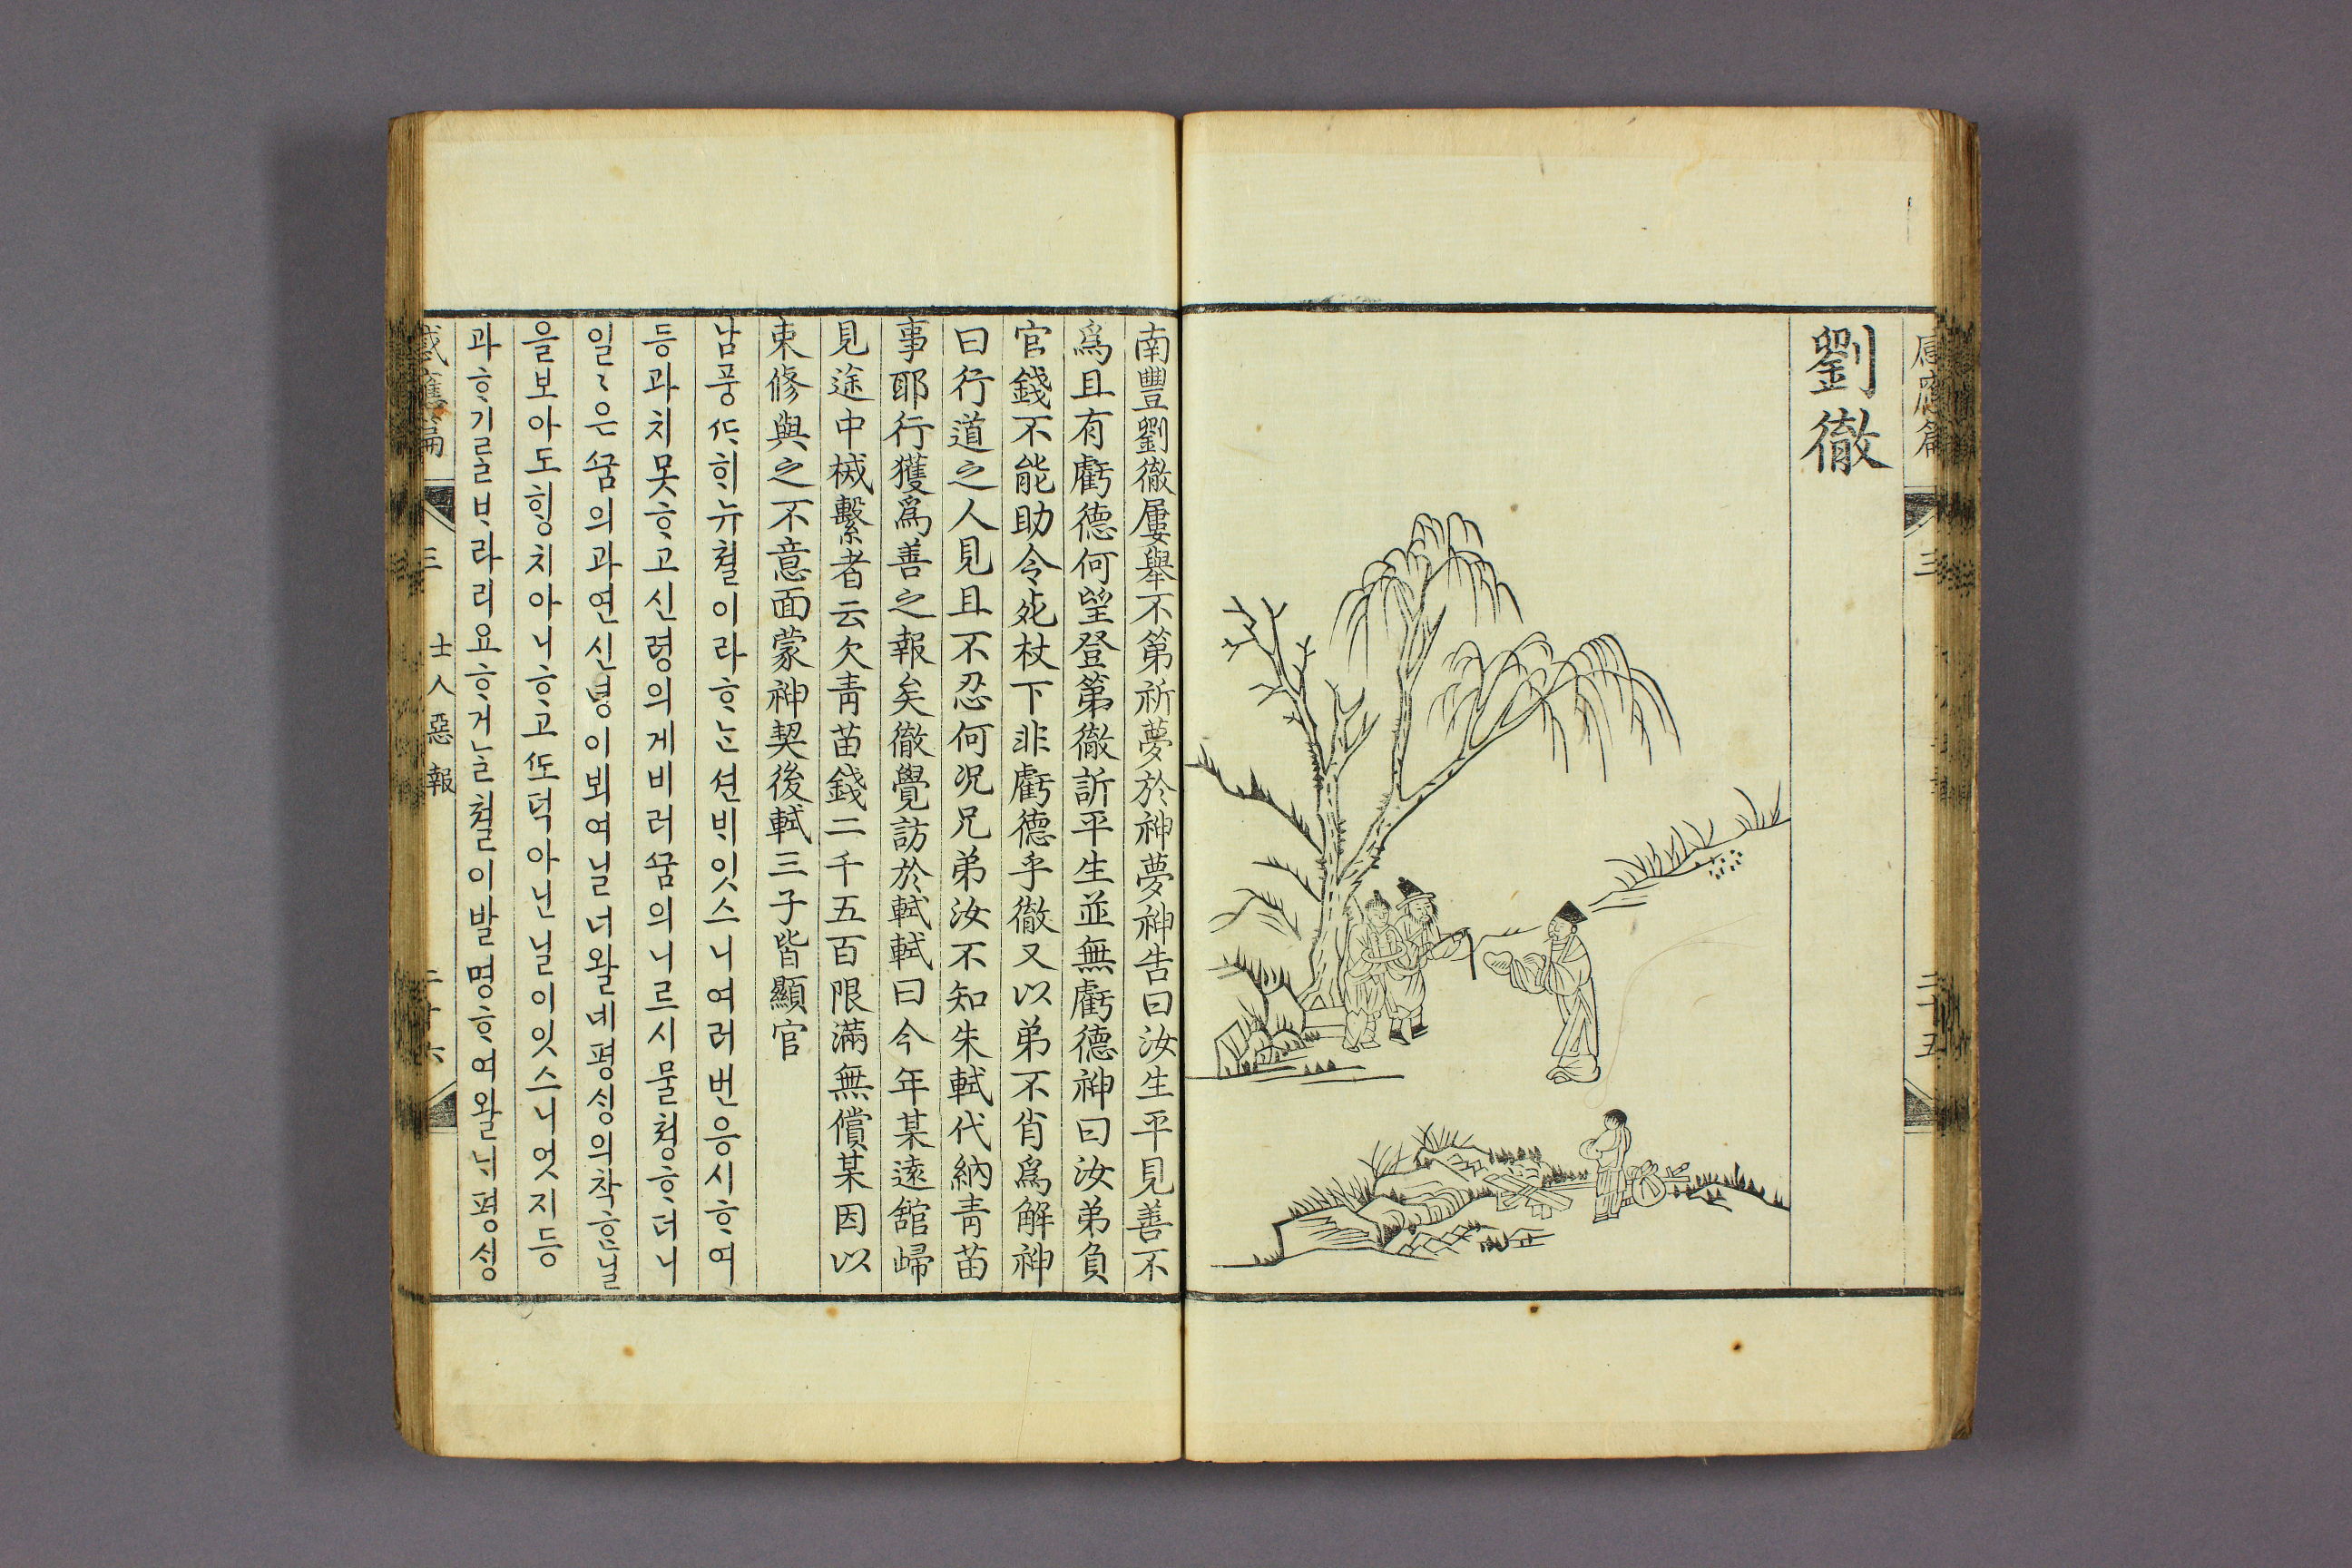 劉徹
南豐劉徹屢舉不第祈夢於神夢神告曰汝生平見善不
爲且有虧德何望登第徹訢平生並無虧德神曰汝弟負
官錢不能助令死杖下非虧德乎徹又以弟不肖爲解神
曰行道之人見且不忍何況兄弟汝不知朱軾代納靑苗
事耶行獲爲善之報矣徹覺訪於軾軾曰今年某遠舘歸
見途中械繫者云欠靑苗錢二千五百限滿無償某因以
束修與之不意面蒙神契後軾三子皆顯官
남풍ᄯᆞ희뉴쳘이라ᄒᆞᄂᆞᆫ션ᄇᆡ잇스니여러번응시ᄒᆞ여
등과치못ᄒᆞ고신령의게비러ᄭᅮᆷ의니르시물쳥ᄒᆞ더니
일〻은ᄭᅮᆷ의과연신녕이뵈여닐너왈네평ᄉᆡᆼ의착ᄒᆞᆫ닐
을보아도ᄒᆡᆼ치아니ᄒᆞ고ᄯᅩ덕아닌닐이잇스니엇지등
과ᄒᆞ기ᄅᆞᆯᄇᆞ라리요ᄒᆞ거ᄂᆞᆯ쳘이발명ᄒᆞ여왈ᄂᆡ평ᄉᆡᆼ
感應篇 三 士人惡報 二十六